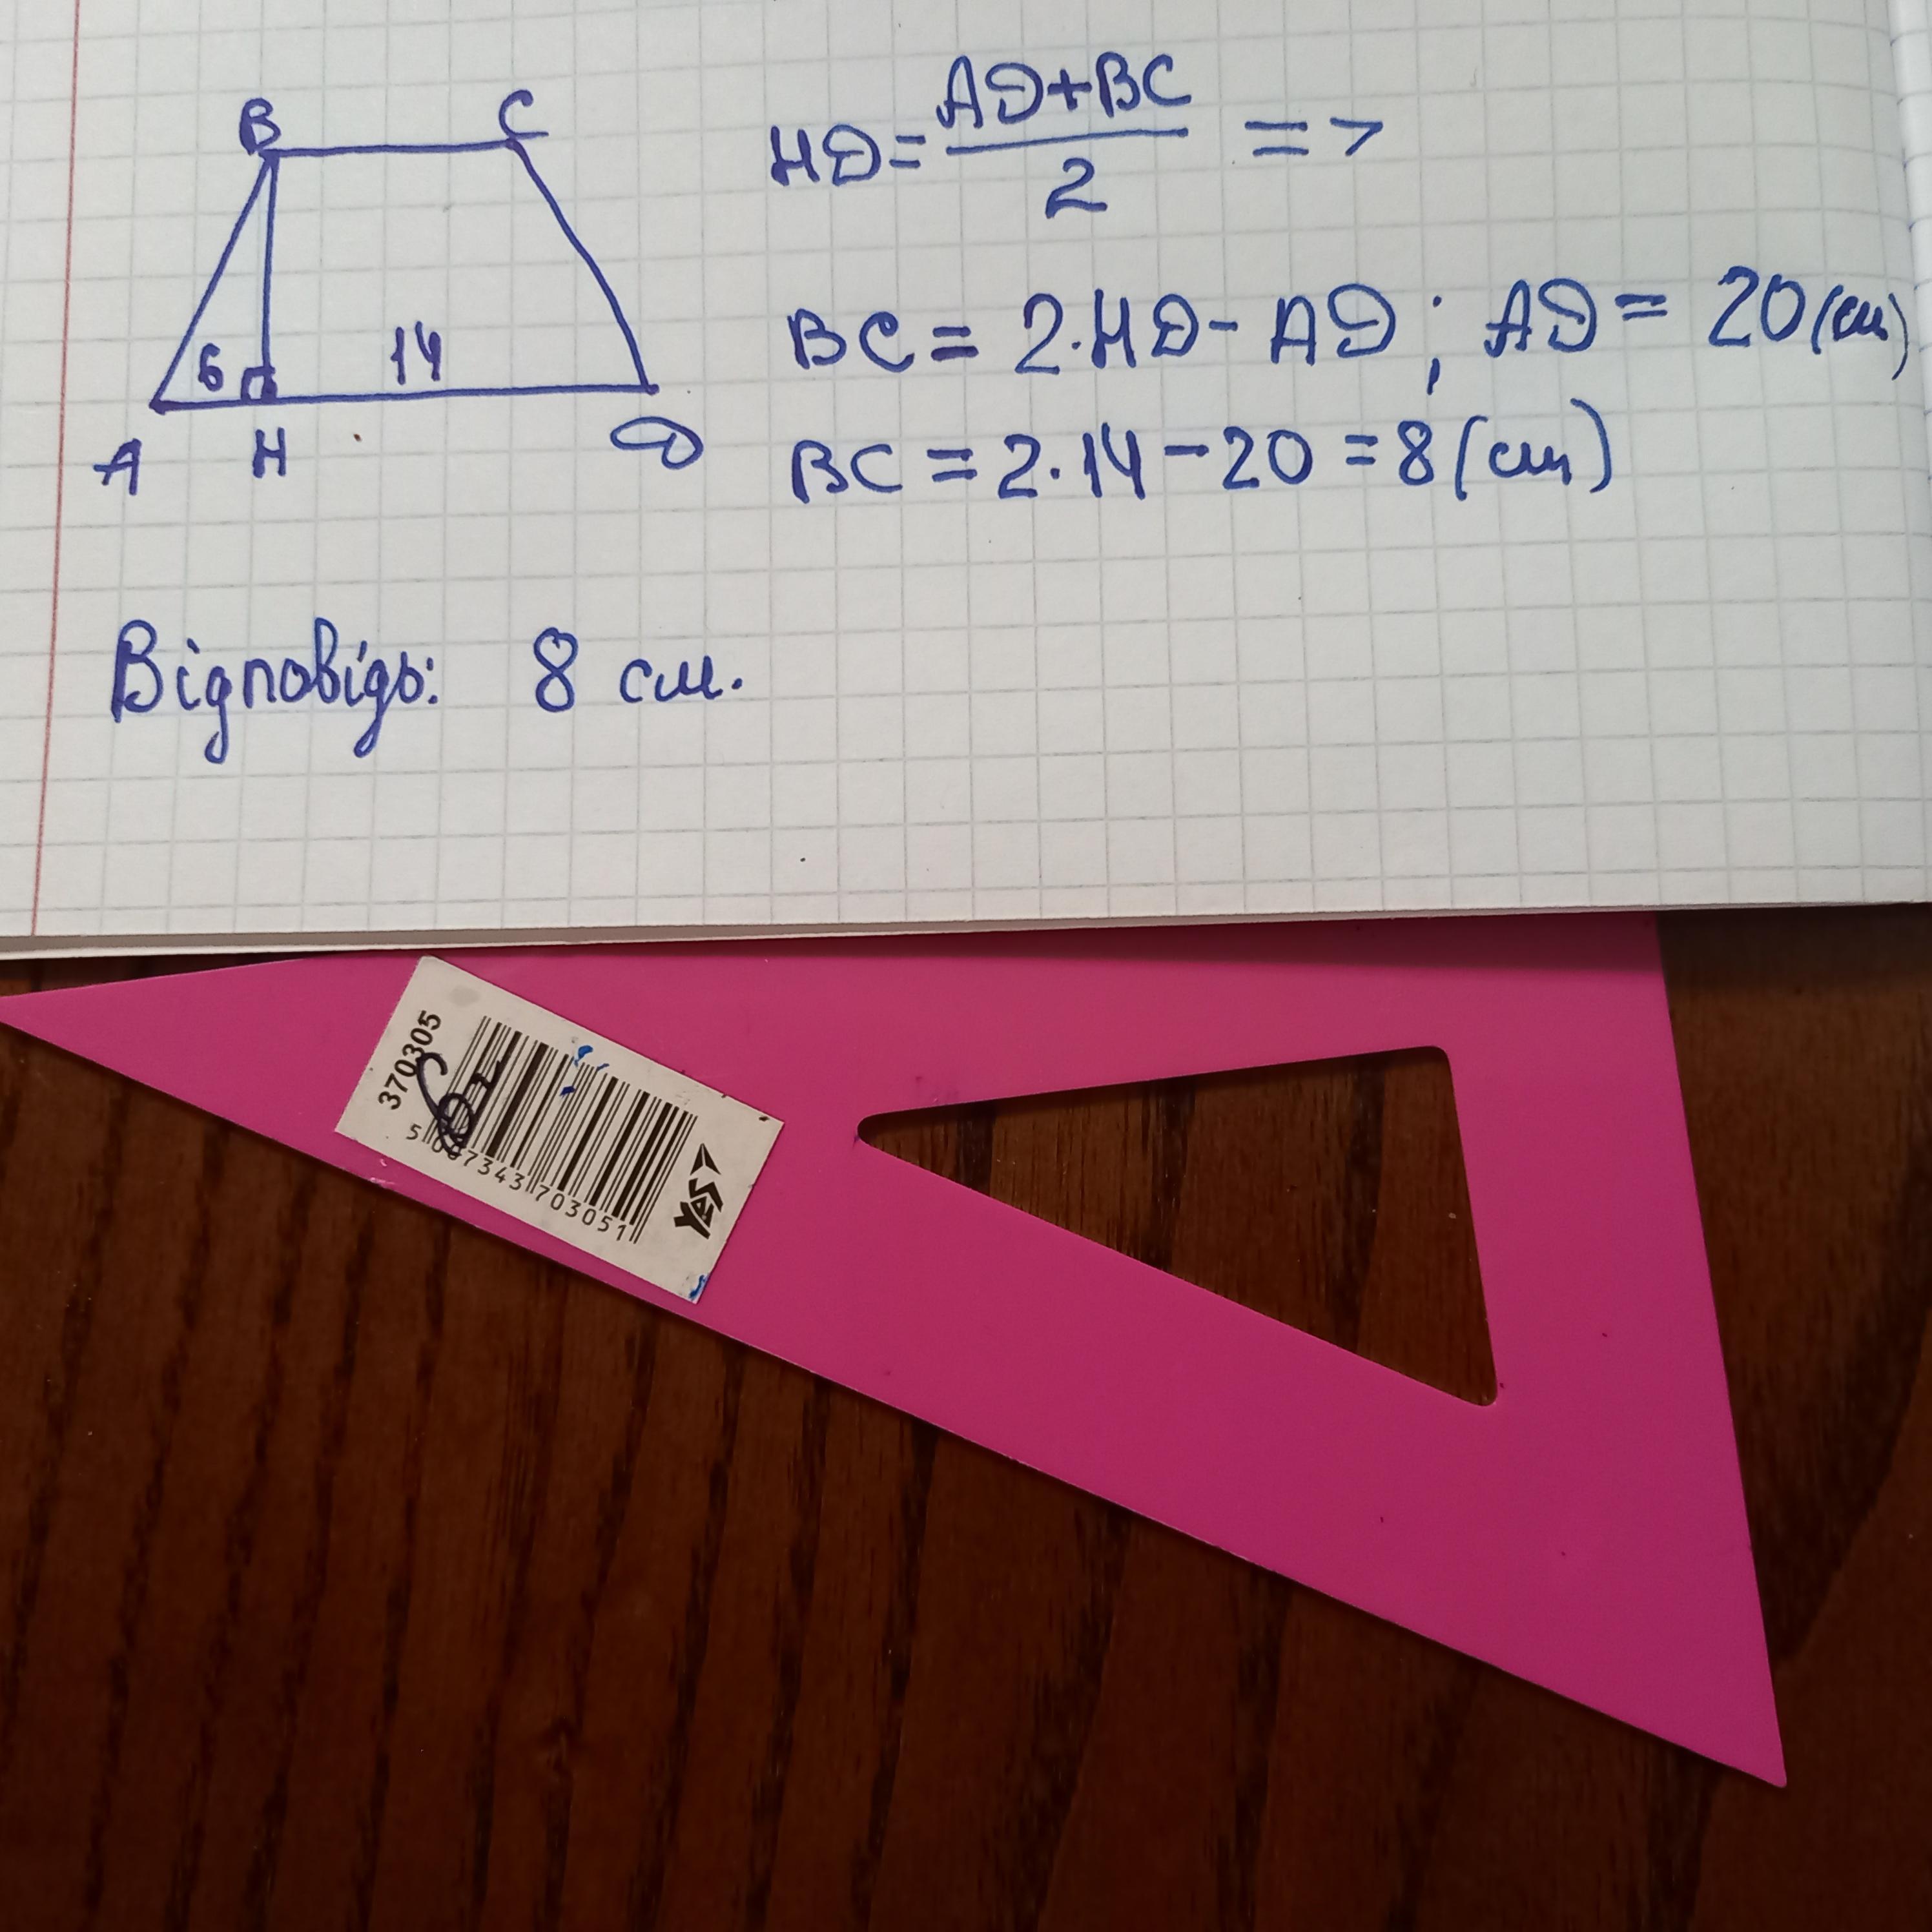 B C
6 14
A H D
HD = (AD+BC)/2 =>
BC = 2·HD - AD; AD = 20 (см)
BC = 2·14 - 20 = 8 (см)
Відповідь: 8 см.
370305
5 703051
YES